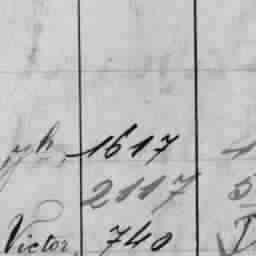 yh, 1617
2117 5
Victor, 740